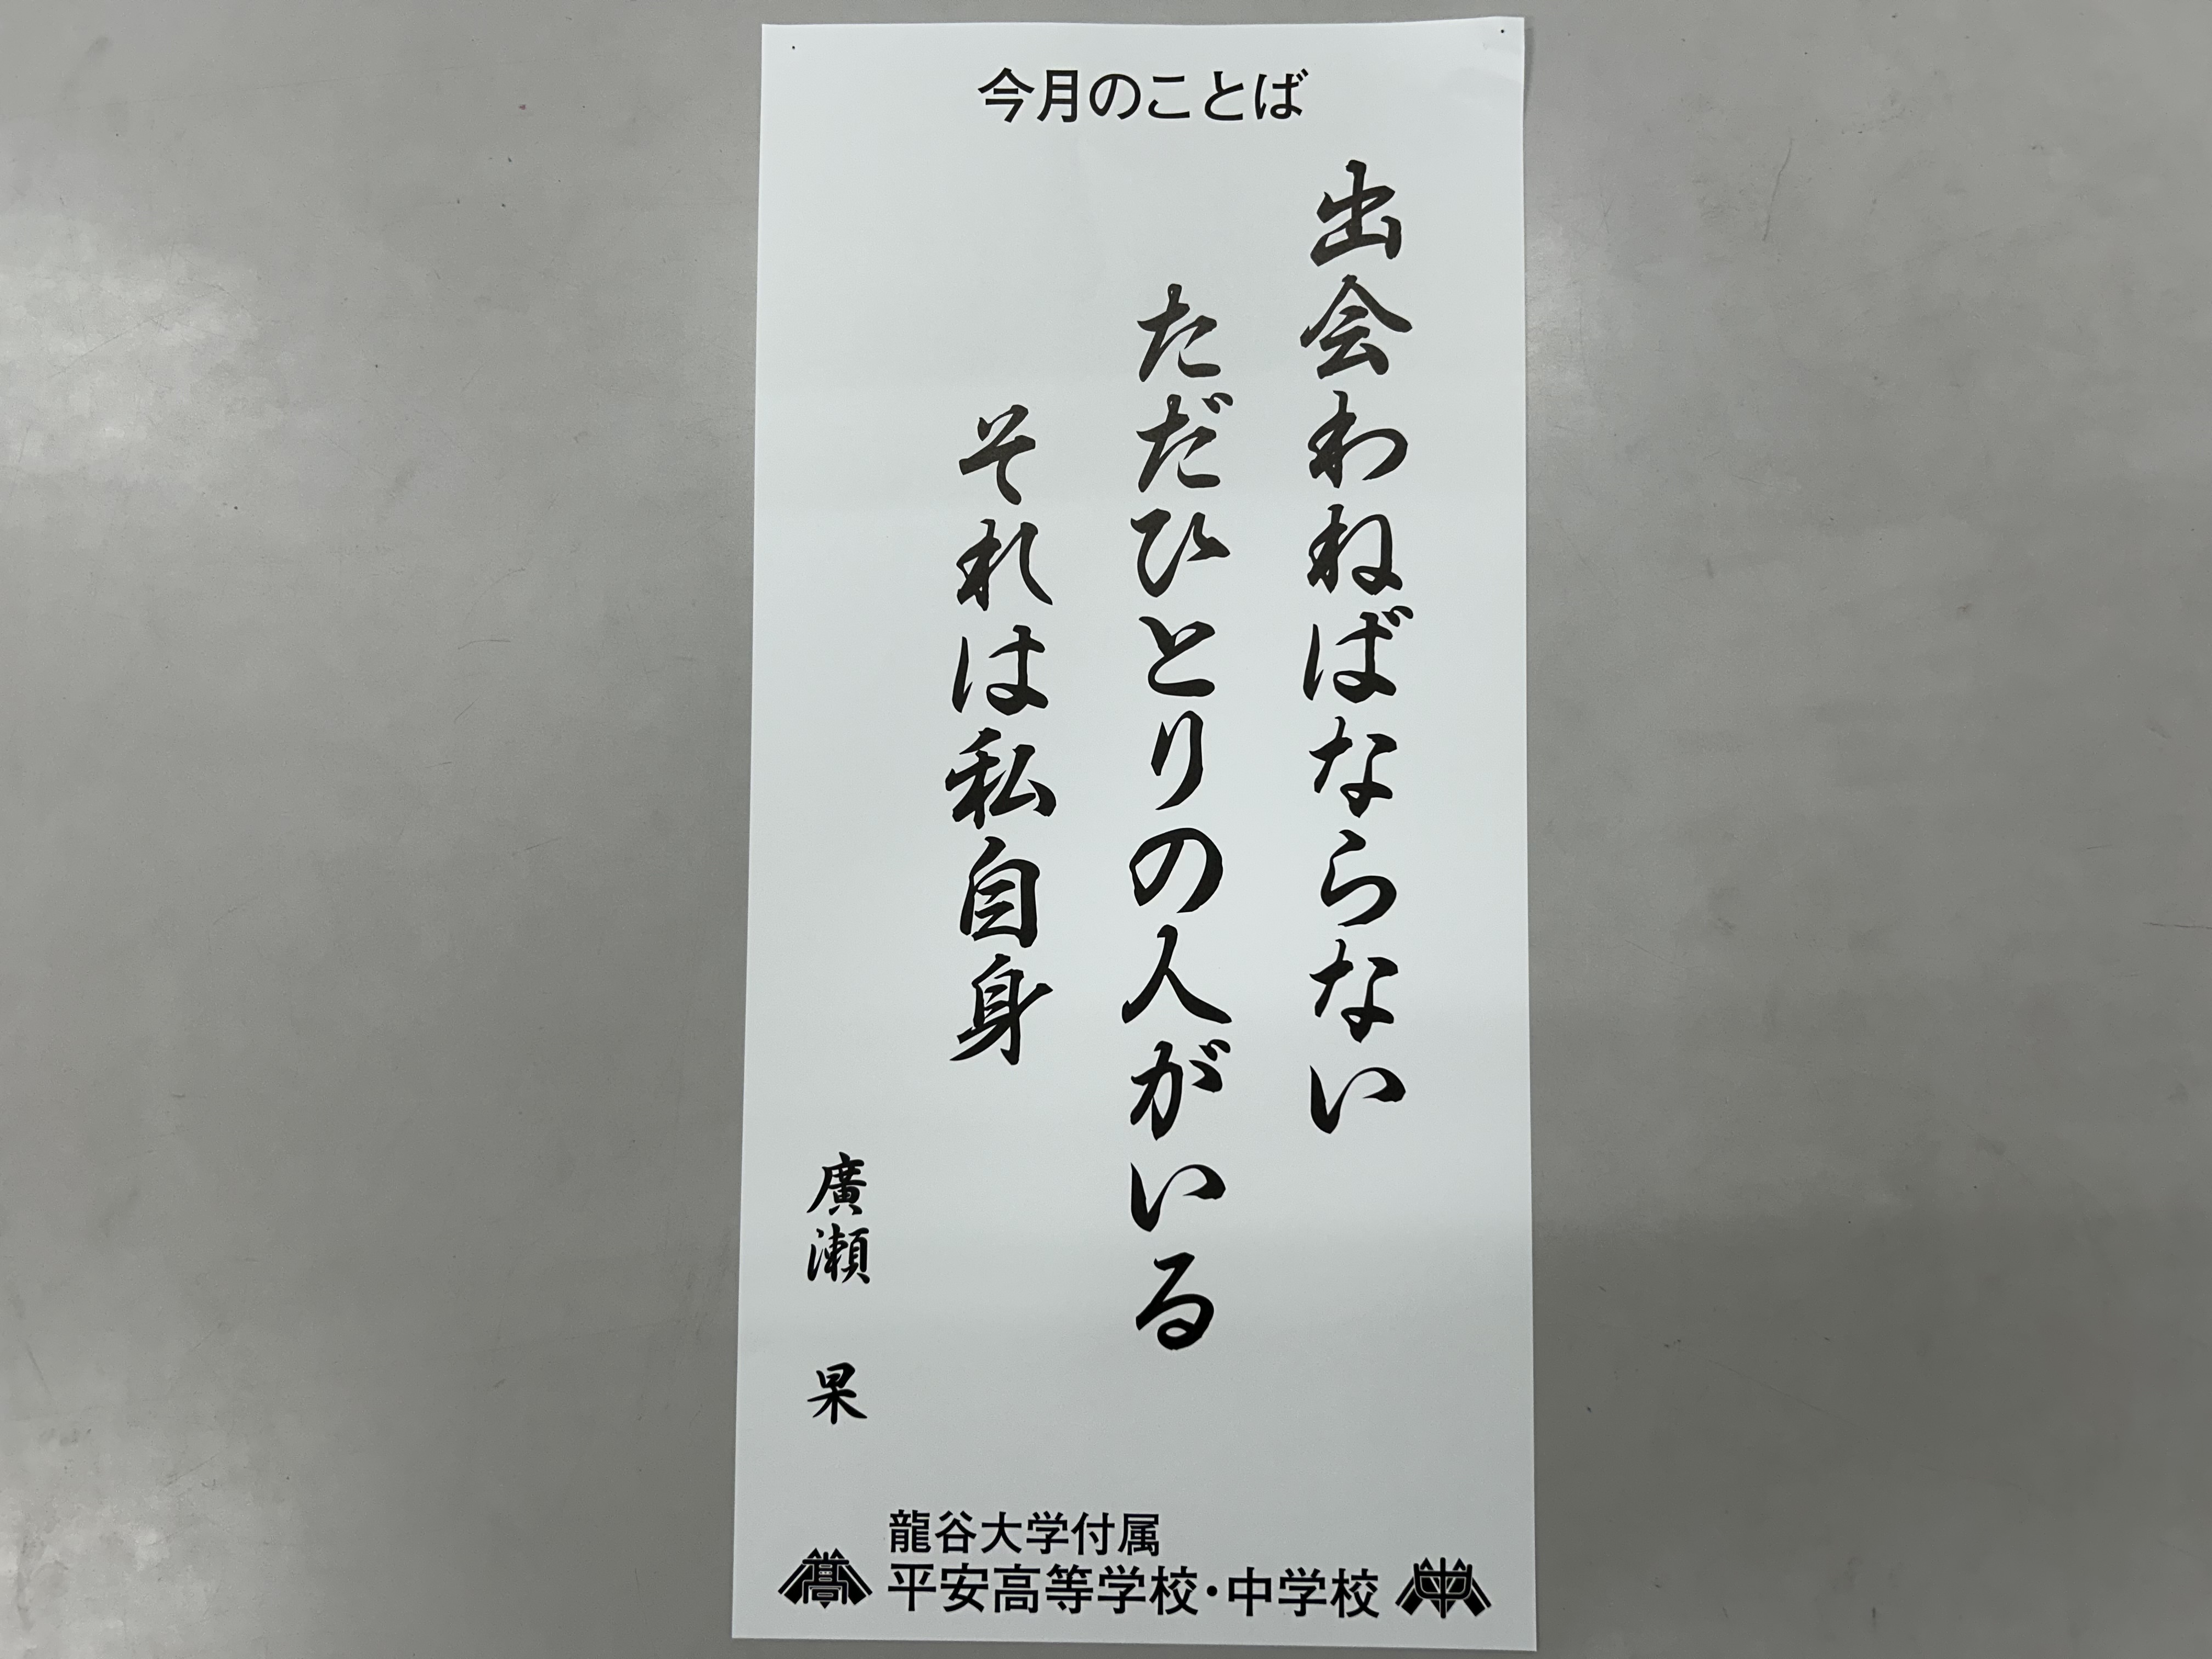 今月のことば
出会わねばならない
ただひとりの人がいる
それは私自身
廣瀬 杲
龍谷大学付属
高 平安高等学校・中学校 中